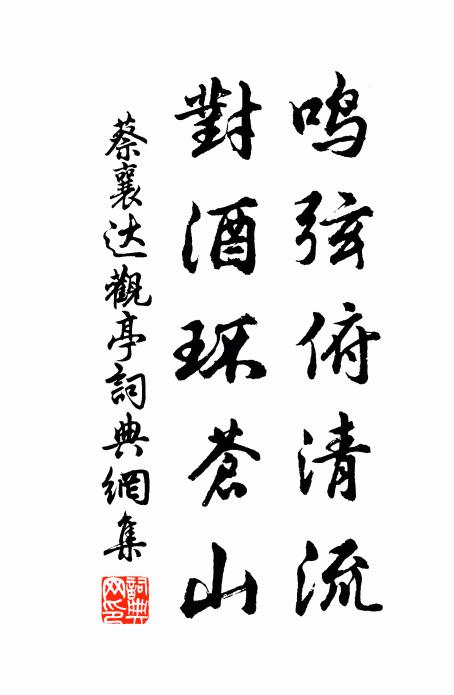 鸣弦俯清流
對酒环蒼山
蔡襄达觀亭詞典網集
詞典網印